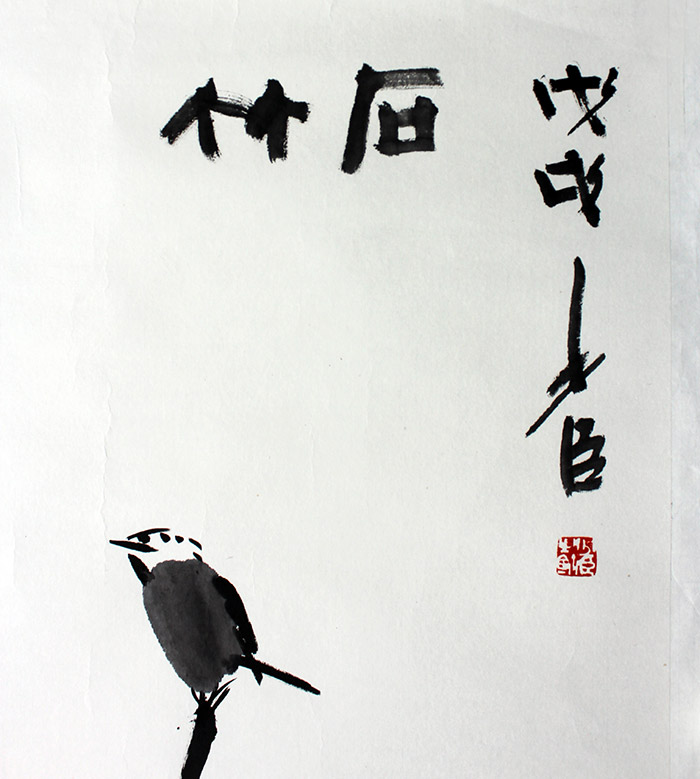 竹石
戊戌
臣